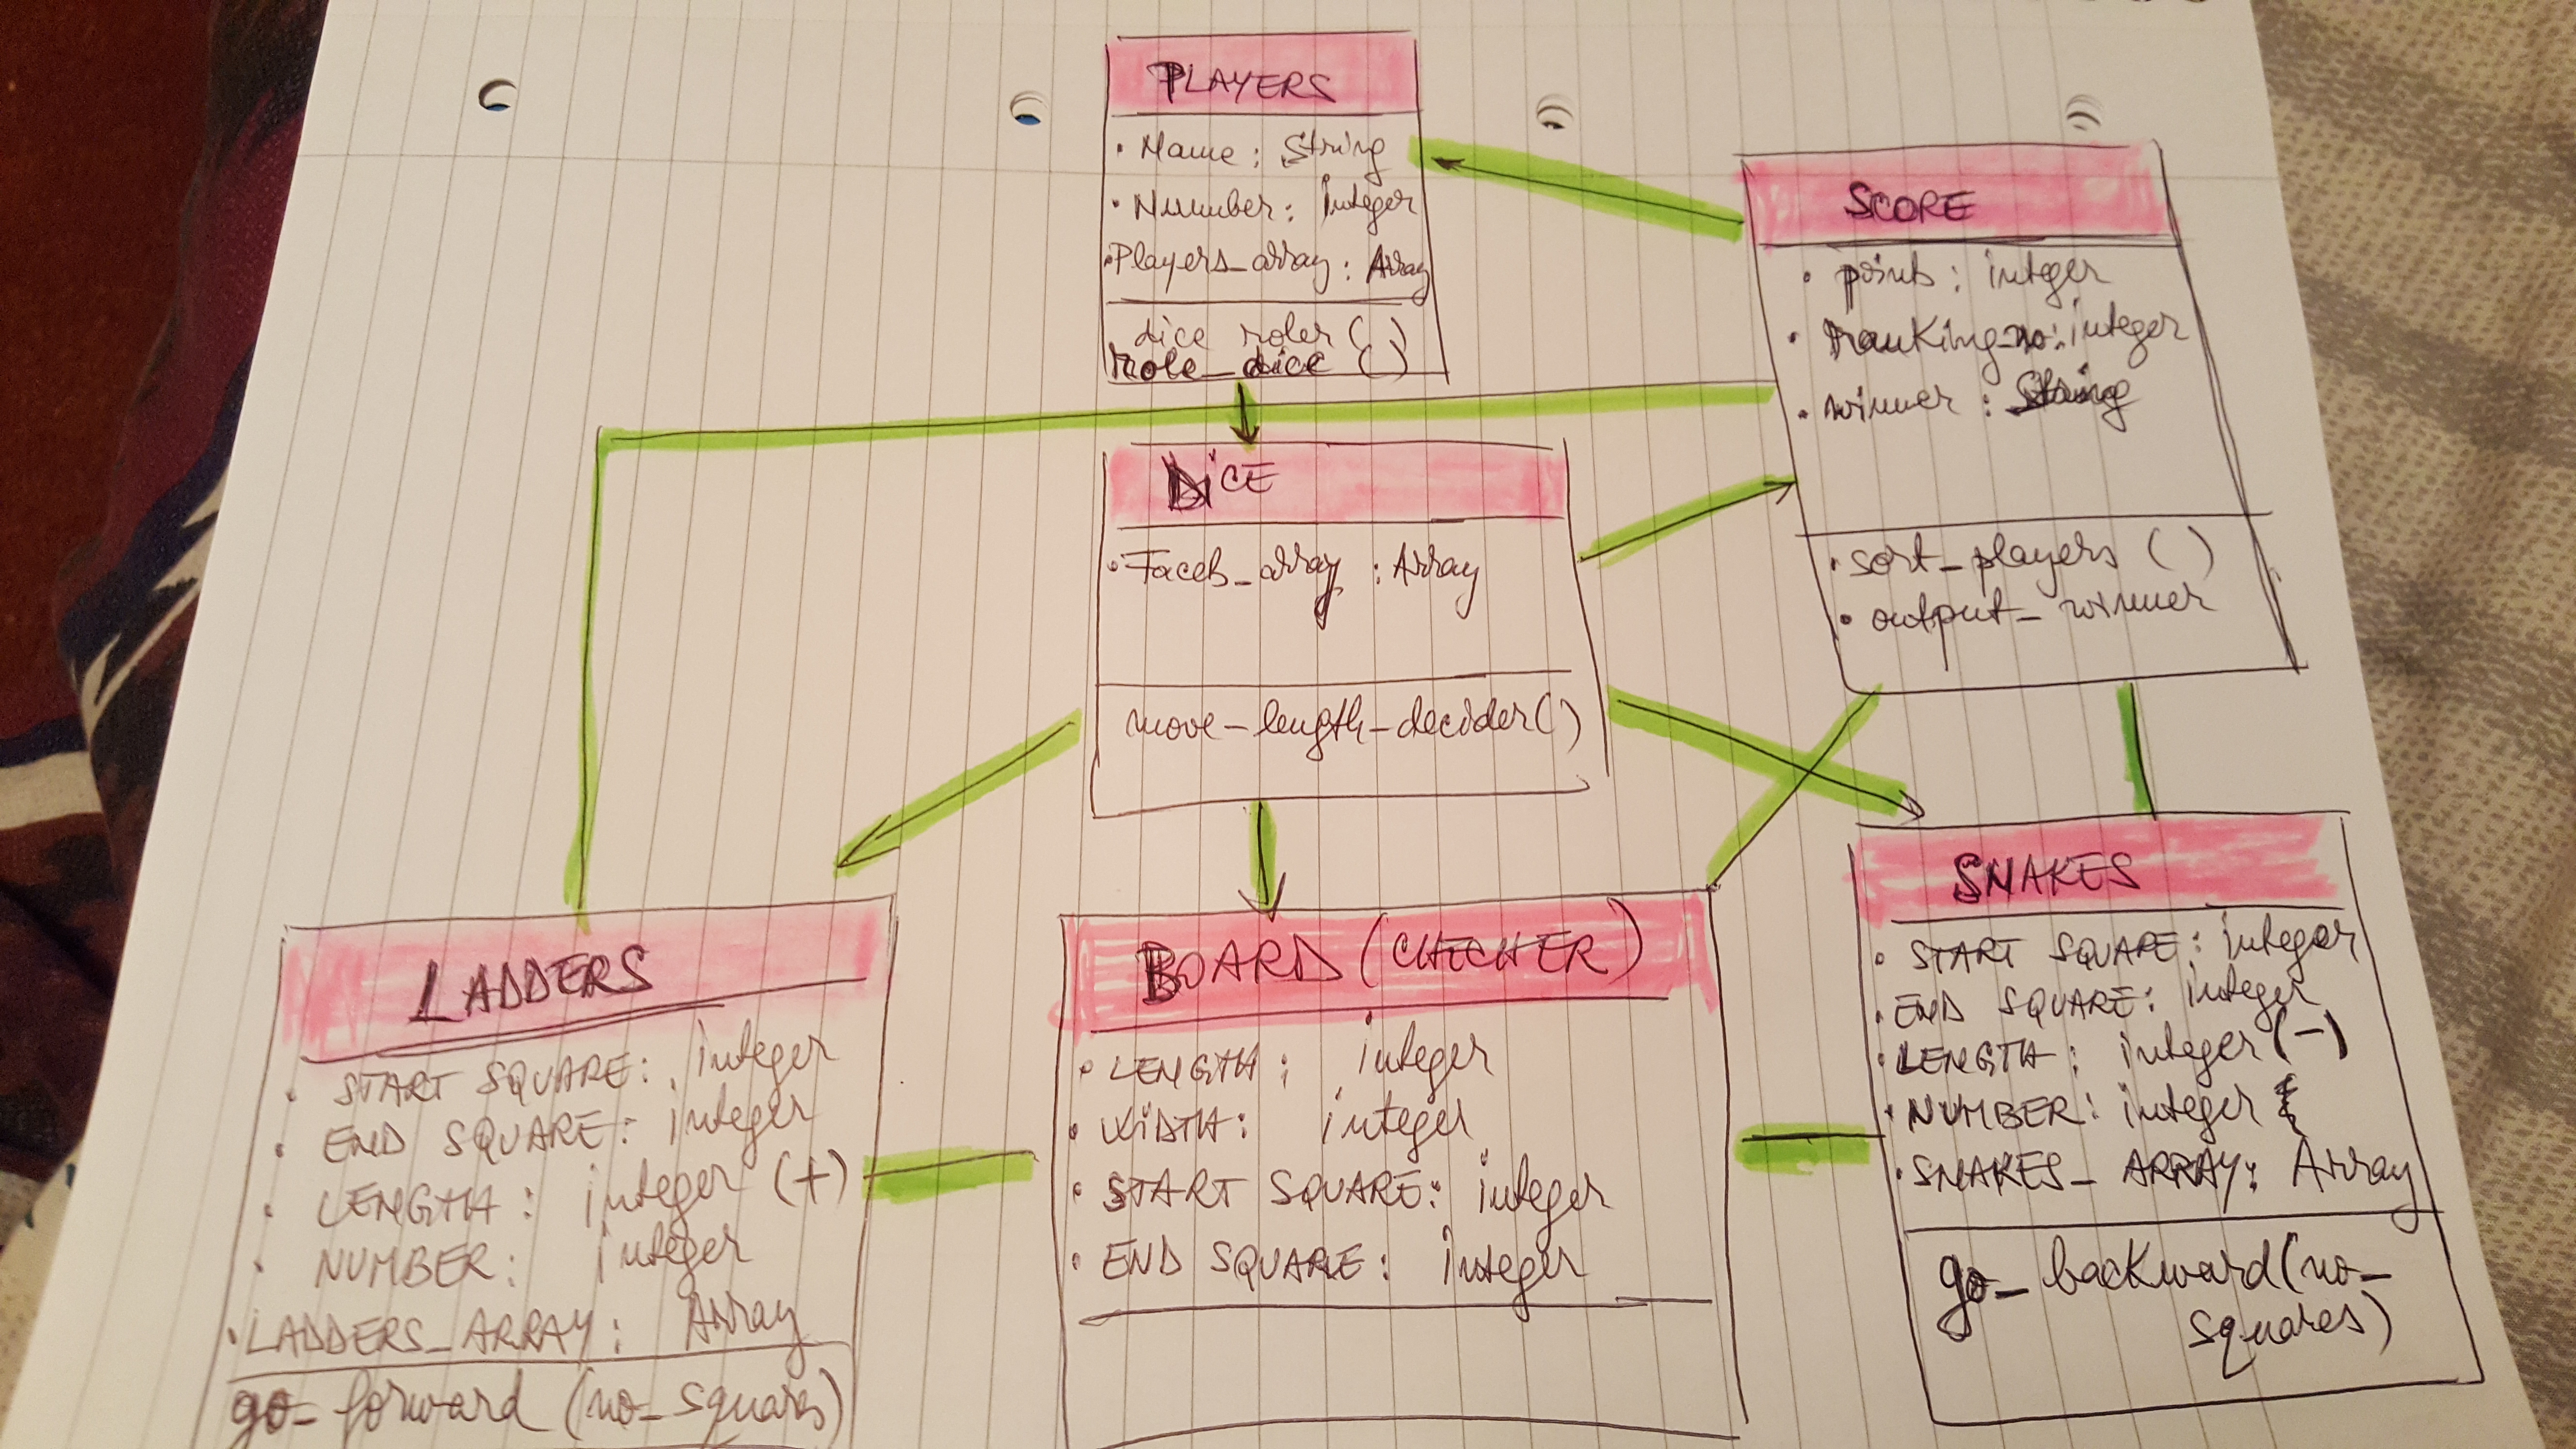 PLAYERS
• Name: String
• Number: Integer
• Players_array: Array
dice roler ( )
role_dice ( )
SCORE
• points: integer
• ranking_no: integer
• winner: String
• sort_players ( )
• output_winner
DiCE
• Faces_array: Array
move_length_decider()
LADDERS
• START SQUARE: integer
• END SQUARE: integer
• LENGTH: integer (+)
• NUMBER: integer
• LADDERS_ARRAY: Array
go_forward (no_squares)
BOARD (CHECHER)
• LENGTH: integer
• WiDTH: integer
• START SQUARE: integer
• END SQUARE: integer
SNAKES
• START SQUARE: integer
• END SQUARE: integer
• LENGTH: integer (-)
• NUMBER: integer
• SNAKES_ARRAY: Array
go_backward(no_
squares)